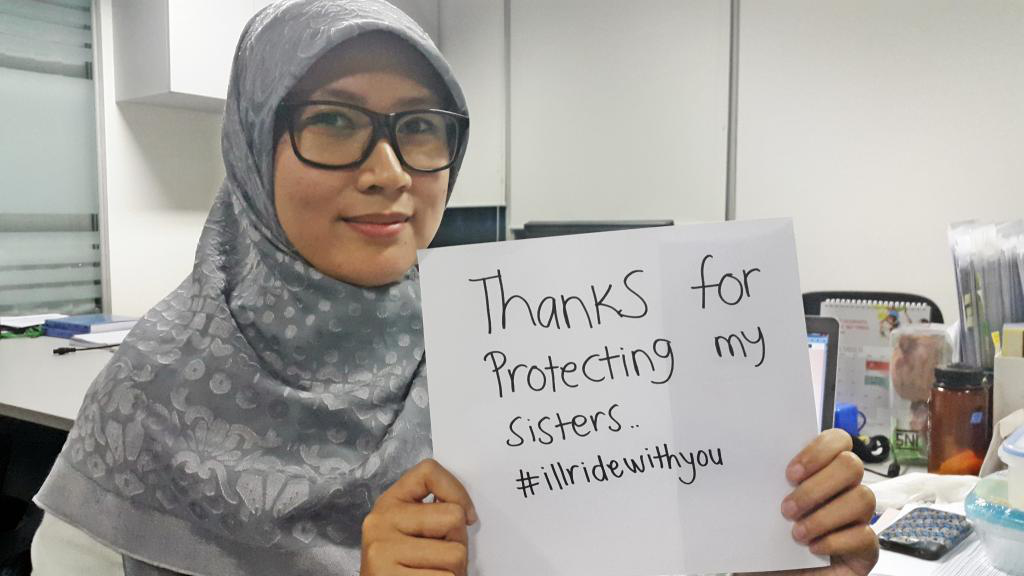 Thanks for
Protecting my
sisters..
#illridewithyou